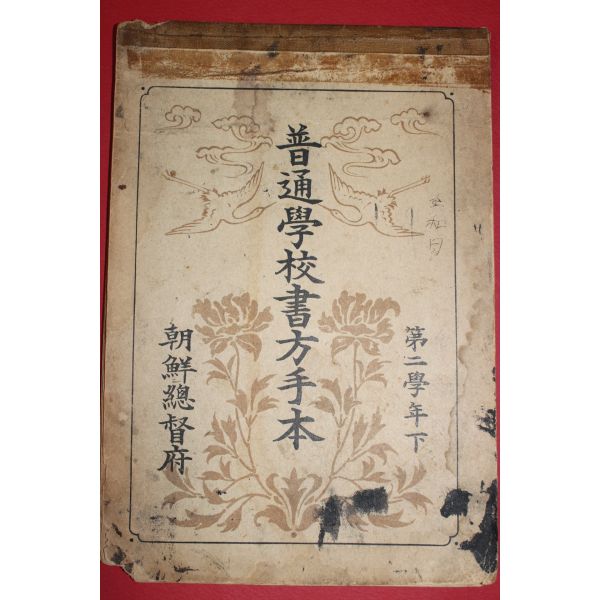 第二學年下
普通學校書方手本
朝鮮總督府